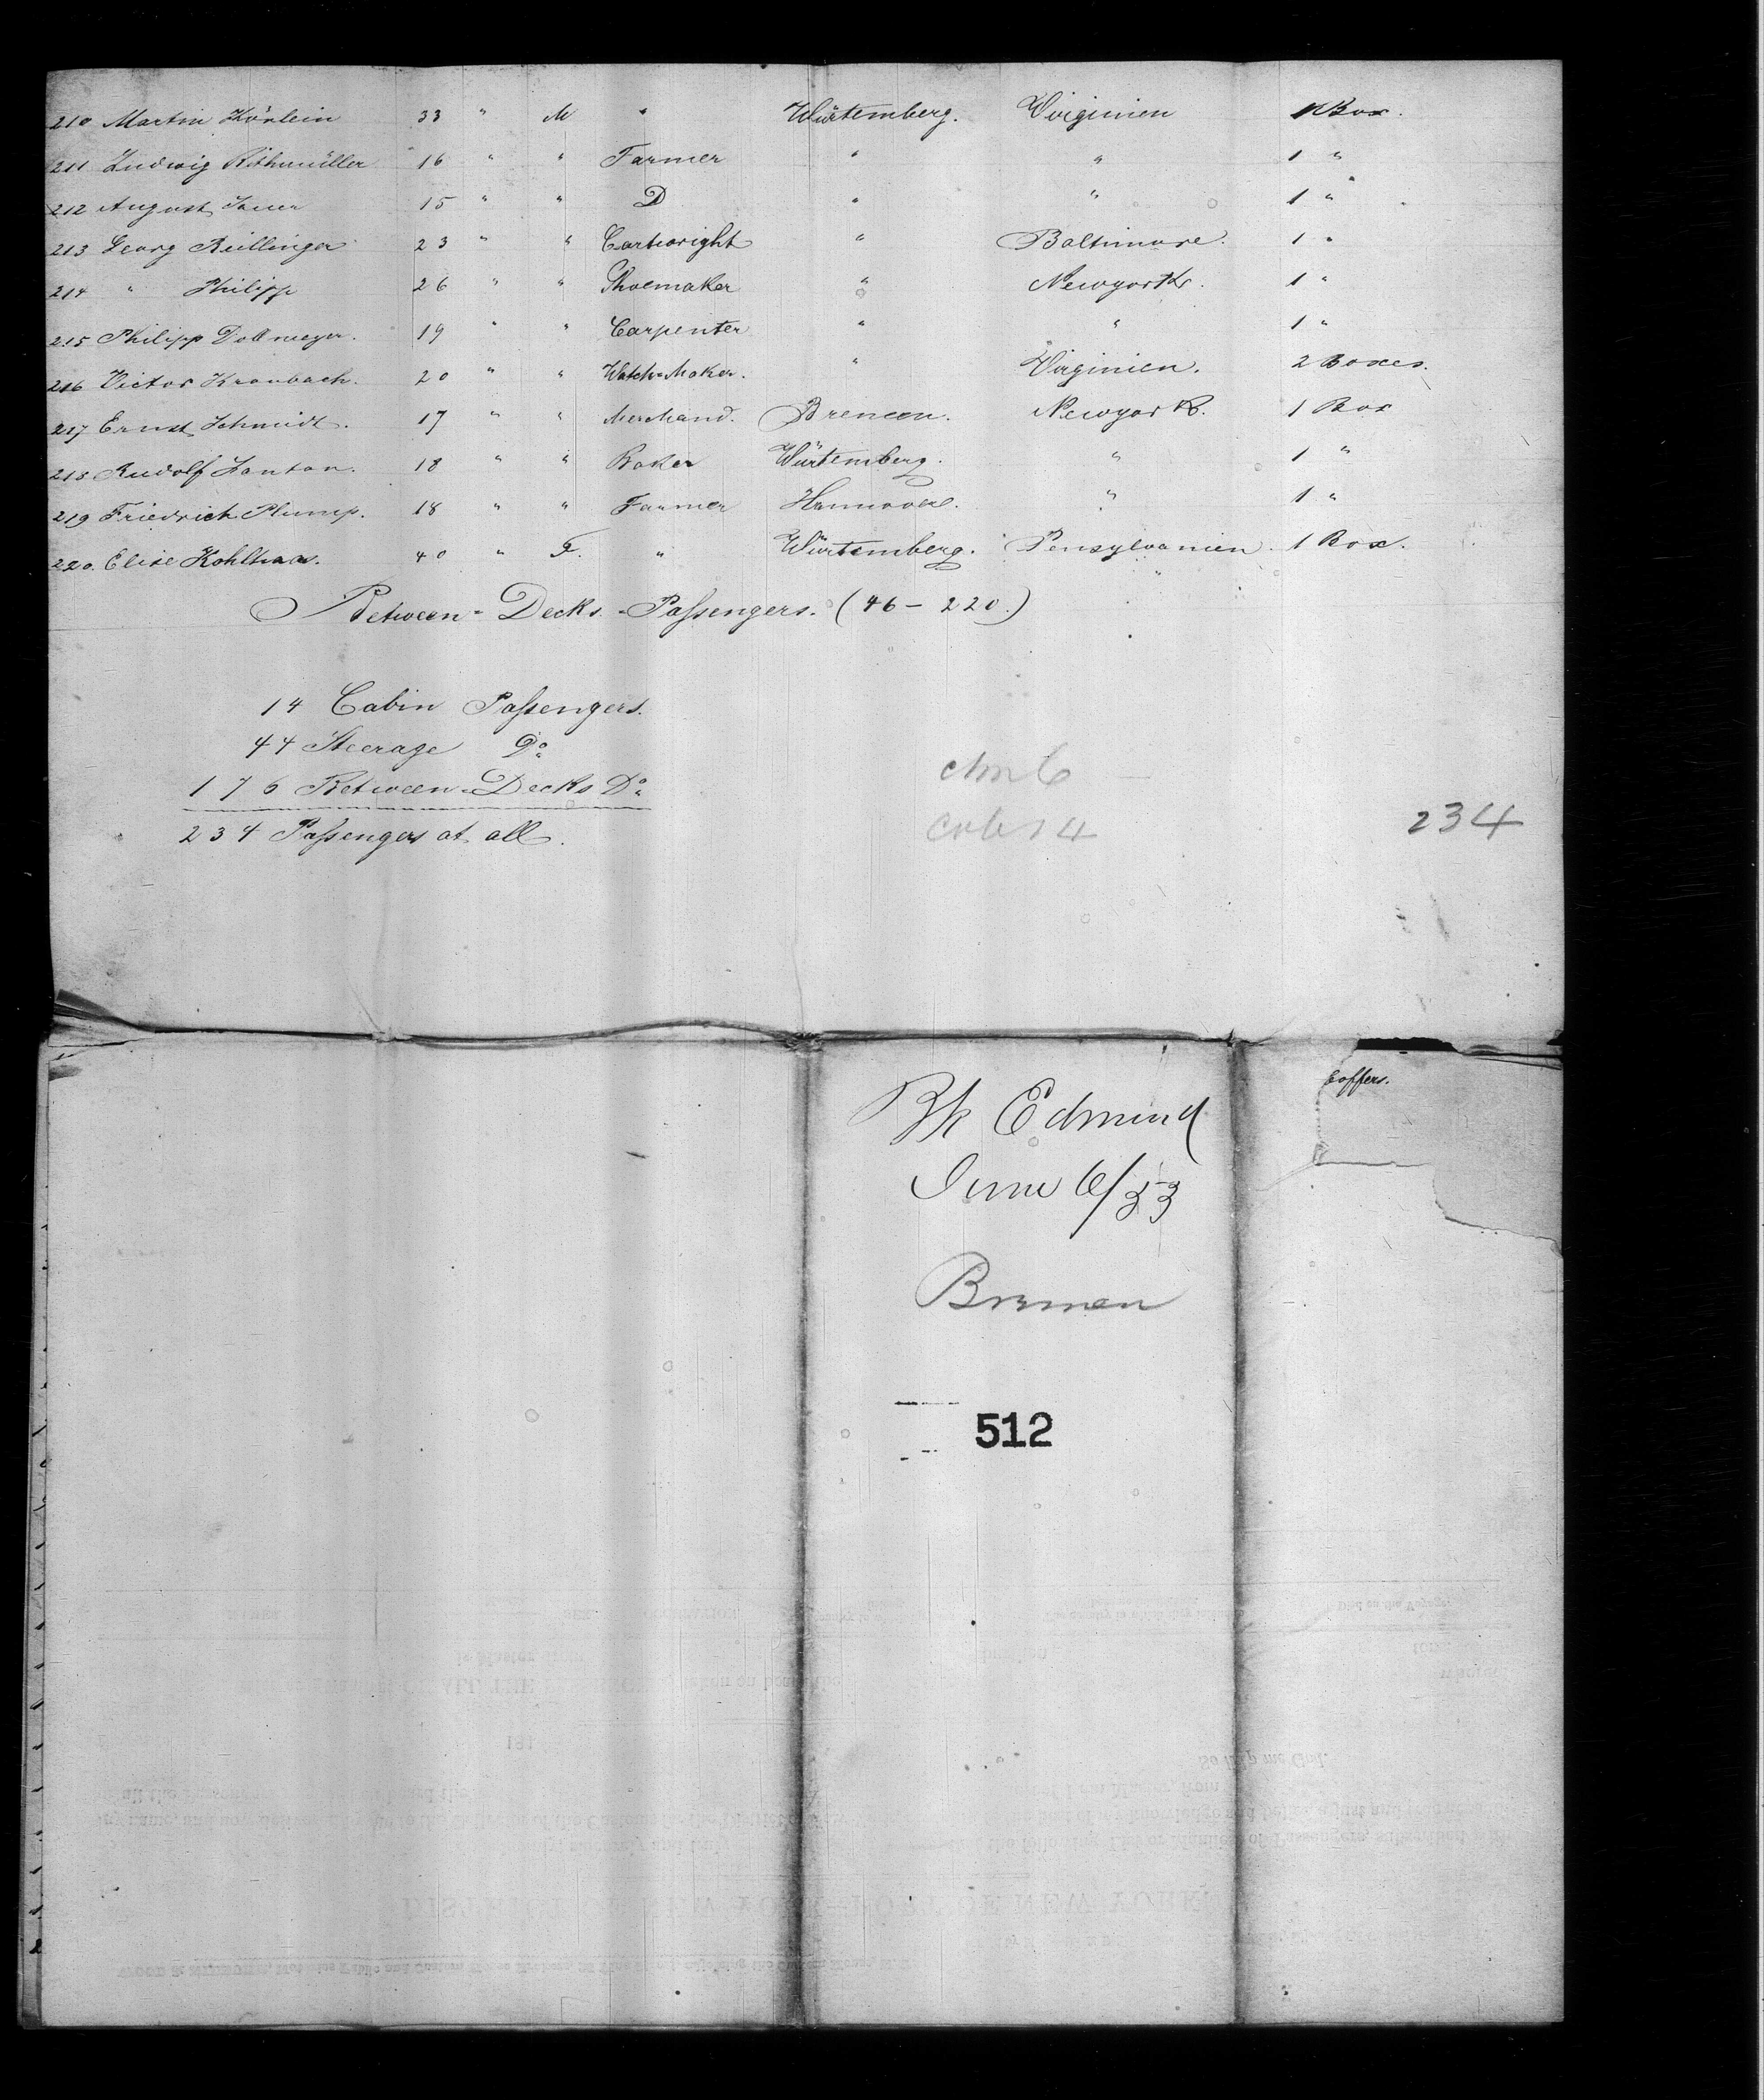 210 Martin Hörlein 33 " M " Würtemberg. Virginien 1 Box.
211 Ludwig Röthmüller 16 " " Farmer " " 1 "
212 August 15 " " D " " 1 "
213 Georg Reillinger 23 " " Cartwright " Baltimore. 1 "
214 " Philipp 26 " " Shoemaker " Newyork. 1 "
215 Philipp Dollmeyer. 19 " " Carpenter " " 1 "
216 Victor Kronbach. 20 " " Watch-Maker. " Virginien. 2 Boxes.
217 Ernst Schmidt. 17 " " Merchand. Bremen. Newyork. 1 Box
218 Rudolf Lanton. 18 " " Baker Würtemberg. " 1 "
219 Friedrich Plump. 18 " " Farmer Hannover. " 1 "
220. Elise Kohlhaas. 40 " F. " Würtemberg. Pensylvanien. 1 Box.
Between-Decks-Passengers. (46 – 220.)
14 Cabin Passengers.
44 Steerage Do
176 Between-Decks Do
234 Passengers at all.
234
Coffers.
Bk Edmund
June 6/53
Bremen
512